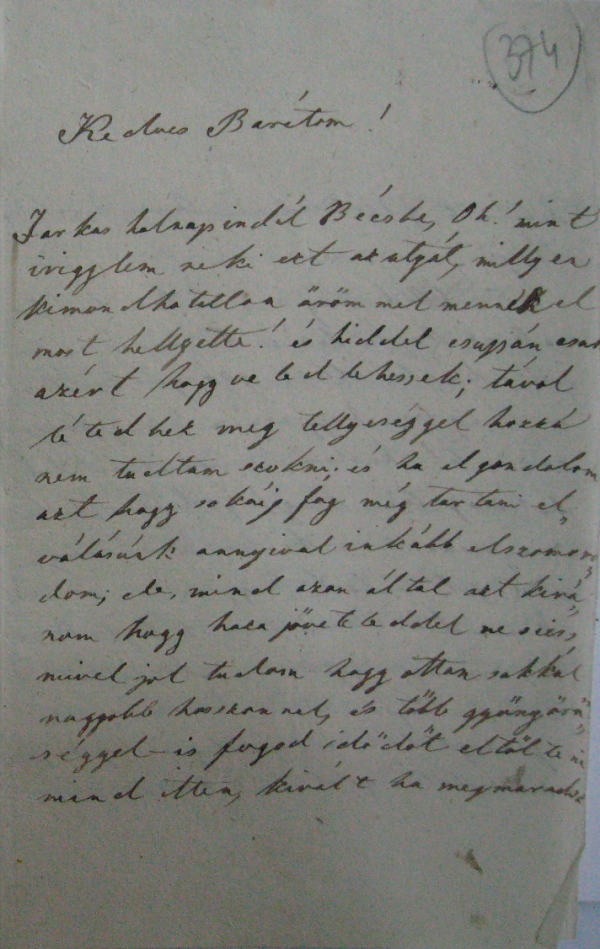 374
Kedves Barátom!
Farkas holnap indúl Bécsbe, Oh! mint
irigylem neki ezt az utját, millyen
kimondhatatlan örömmel mennék el
most hellyette! és hiddel csupán csak
azért hogy veled lehessek; távol
létedhez meg tellyeséggel hozzá
nem tudtam szokni. és ha elgondolom
azt hogy sokáig fog még tartani el„
válásunk annyival inkább elszomoro
dom; de, mind azon által azt kivá„
nom hogy haza jöveteleddel ne siess,
mivel jol tudom hogy ottan sokkal
nagyobb haszonnal, és több gyönyörü„
séggel is fogod idödöt eltölteni
mind itten, kivált ha megmaradsz